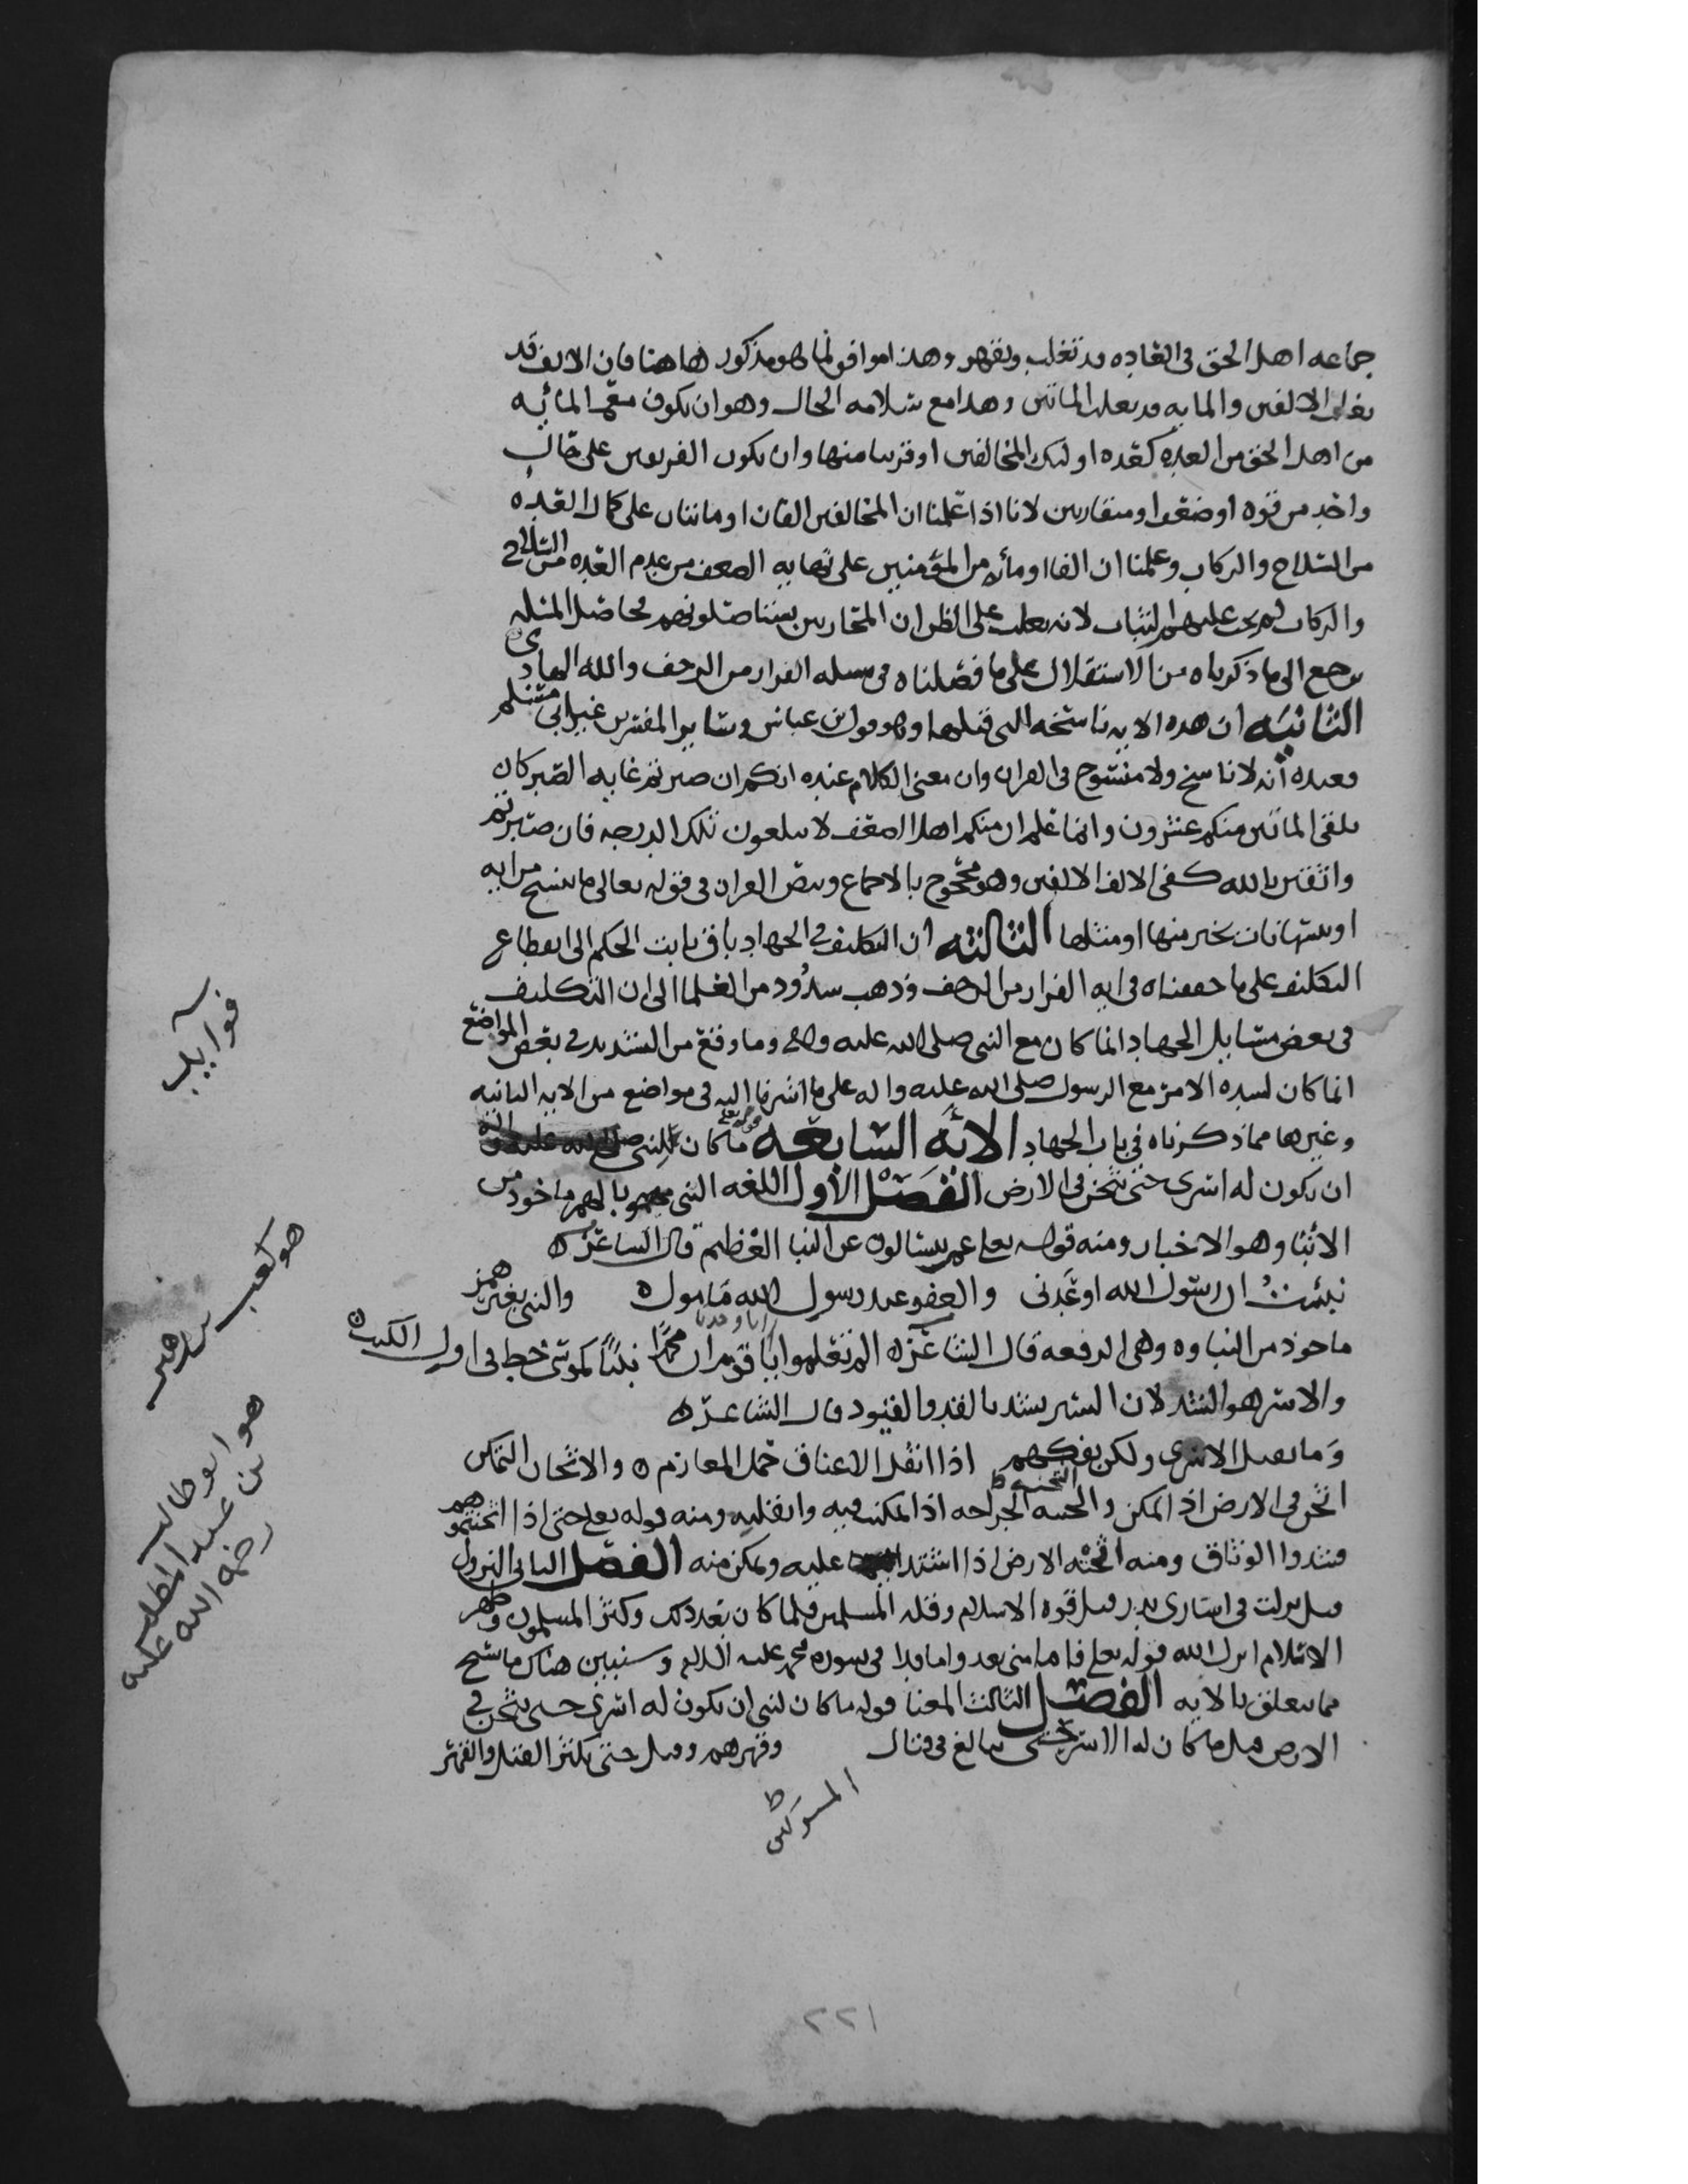 جماعه اهل الحق فى العاده قد تغلب وتقهر وهذا موافق لما هو مذكور هاهنا فان الالف قد
تغلب الالفين والمايه قد تغلب الماتين وهذا مع سلامه الحال وهو ان يكون مع المائه
من اهل الحق من العده كعده اولئك المخالفين او قريبا منها وان يكون الفريقين على حال
واحد من قوه او ضعف او متقاربين لانا اذا علمنا ان المخالفين الفان او مائتان على كمال العده
من السلاح والركاب وعلمنا ان الفا او مائه من المؤمنين على نهايه الضعف من عدم العده من السلاح
والركاب لم يجب عليهم الثبات لانه يغلب على الظن ان المحاربين يستاصلونهم فحاصل المسله
يرجع الى ما ذكرناه من الاستقلال على ما فصلناه فى مسله الفرار من الزحف والله الهادى
الثانيه ان هذه الايه ناسخه للتى قبلها وهو قول ابن عباس وساير المفسرين غير ابى مسلم
فعنده انه لا ناسخ ولا منسوخ فى القران وان معنى الكلام عنده انكم ان صبرتم غايه الصبر كان
يلقى الماتين منكم عشرون وانما علم ان منكم اهل الضعف لا يبلغون تلك الدرجه فان صبرتم
واثقين بالله كفى الالف الالفين وهو محجوج بالاجماع وبنص القران فى قوله تعالى ما ننسخ من ايه
او ننسها نات بخير منها او مثلها الثالثه ان التكليف فى الجهاد باق ثابت الحكم الى انقطاع
التكليف على ما حققناه فى ايه الفرار من الزحف وذهب شذوذ من العلما الى ان التكليف
فى بعض مسايل الجهاد انما كان مع النبى صلى الله عليه واله وما وقع من التشديد فى بعض المواضع
انما كان لشده الامر مع الرسول صلى الله عليه واله على ما اشرنا اليه فى مواضع من الايه الثانيه
وغيرها مما ذكرناه فى باب الجهاد الايه السابعه قوله تعلى ما كان لنبى
ان يكون له اسرى حتى يثخن فى الارض الفصل الاول اللغه النبى مهموز بالهمز ماخوذ من
الانبا وهو الاخبار ومنه قوله تعلى عم يتسالون عن النبا العظيم قال الشاعر ه
نبئت ان رسول الله اوعدنى والعفو عند رسول الله مامول ه والنبى بغير همز
ماخوذ من النباوه وهى الرفعه قال الشاعر ه الم تعلموا يا قوم ان محمدا نبيا كموسى خط فى اول الكتب ه
والاسر هو الشد لان الاسير يشد بالقد والقيود قال الشاعر ه
وما نقتل الاسرى ولكن نفكهم اذا اثقل الاعناق حمل المغارم ه والاثخان التمكن
اثخن فى الارض اذا تمكن واثخنته الجراحه اذا تمكنت فيه واثقلته ومنه قوله تعلى حتى اذا اثخنتموهم
فشدوا الوثاق ومنه اثخنه الارض اذا اشتد عليه وتمكن منه الفصل الثانى النزول
قيل نزلت فى اسارى بدر قبل قوه الاسلام وقله المسلمين فلما كان بعد ذلك وكثر المسلمون وظهر
الاسلام انزل الله قوله تعلى فاما منا بعد واما فدا فى سوره محمد عليه السلام وسنبين هناك ما سنح
مما يتعلق بالايه الفصل الثالث المعنا قوله ما كان لنبى ان يكون له اسرى حتى يثخن فى
الارض قيل ما كان له الاسر حتى يبالغ فى قتال وقهرهم وقيل حتى يكثر القتل والقهر
المشركين ظ
فوايد
هو كعب بن زهير
هو ابو طالب
بن عبد المطلب
رضى الله عليه
٢٢١